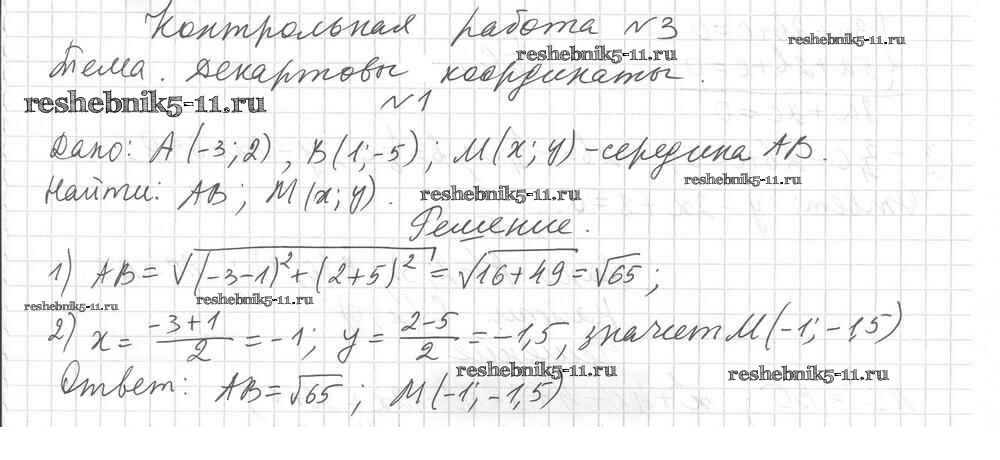 Контрольная работа №3
reshebnik5-11.ru
reshebnik5-11.ru
Тема. Декартовы координаты.
reshebnik5-11.ru
№1
Дано: A(-3; 2), B(1; -5); M(x; y) - середина AB.
reshebnik5-11.ru
Найти: AB; M(x; y).
reshebnik5-11.ru
Решение.
1) AB = √((-3-1)² + (2+5)²) = √(16+49) = √65;
reshebnik5-11.ru
reshebnik5-11.ru
2) x = (-3+1)/2 = -1; y = (2-5)/2 = -1,5, значит M(-1; -1,5)
reshebnik5-11.ru
reshebnik5-11.ru
Ответ: AB = √65; M(-1; -1,5)